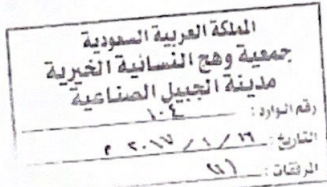 المملكة العربية السعودية
جمعية وهج النسائية الخيرية
مدينة الجبيل الصناعية
رقم الوارد : ١٠٤
التاريخ : ١٦ / ١ / ٢٠١٧ م
المرفقات :